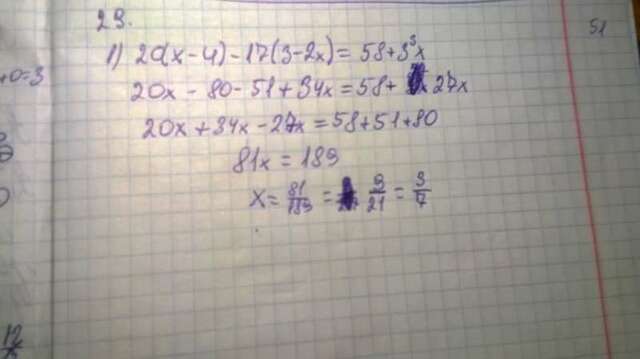 29.
51
1) 20(x-4)-17(3-2x)=58+3³x
+0=3
20x-80-51+34x=58+27x
20x+34x-27x=58+51+80
81x=189
x=81/189=9/21=3/7
12